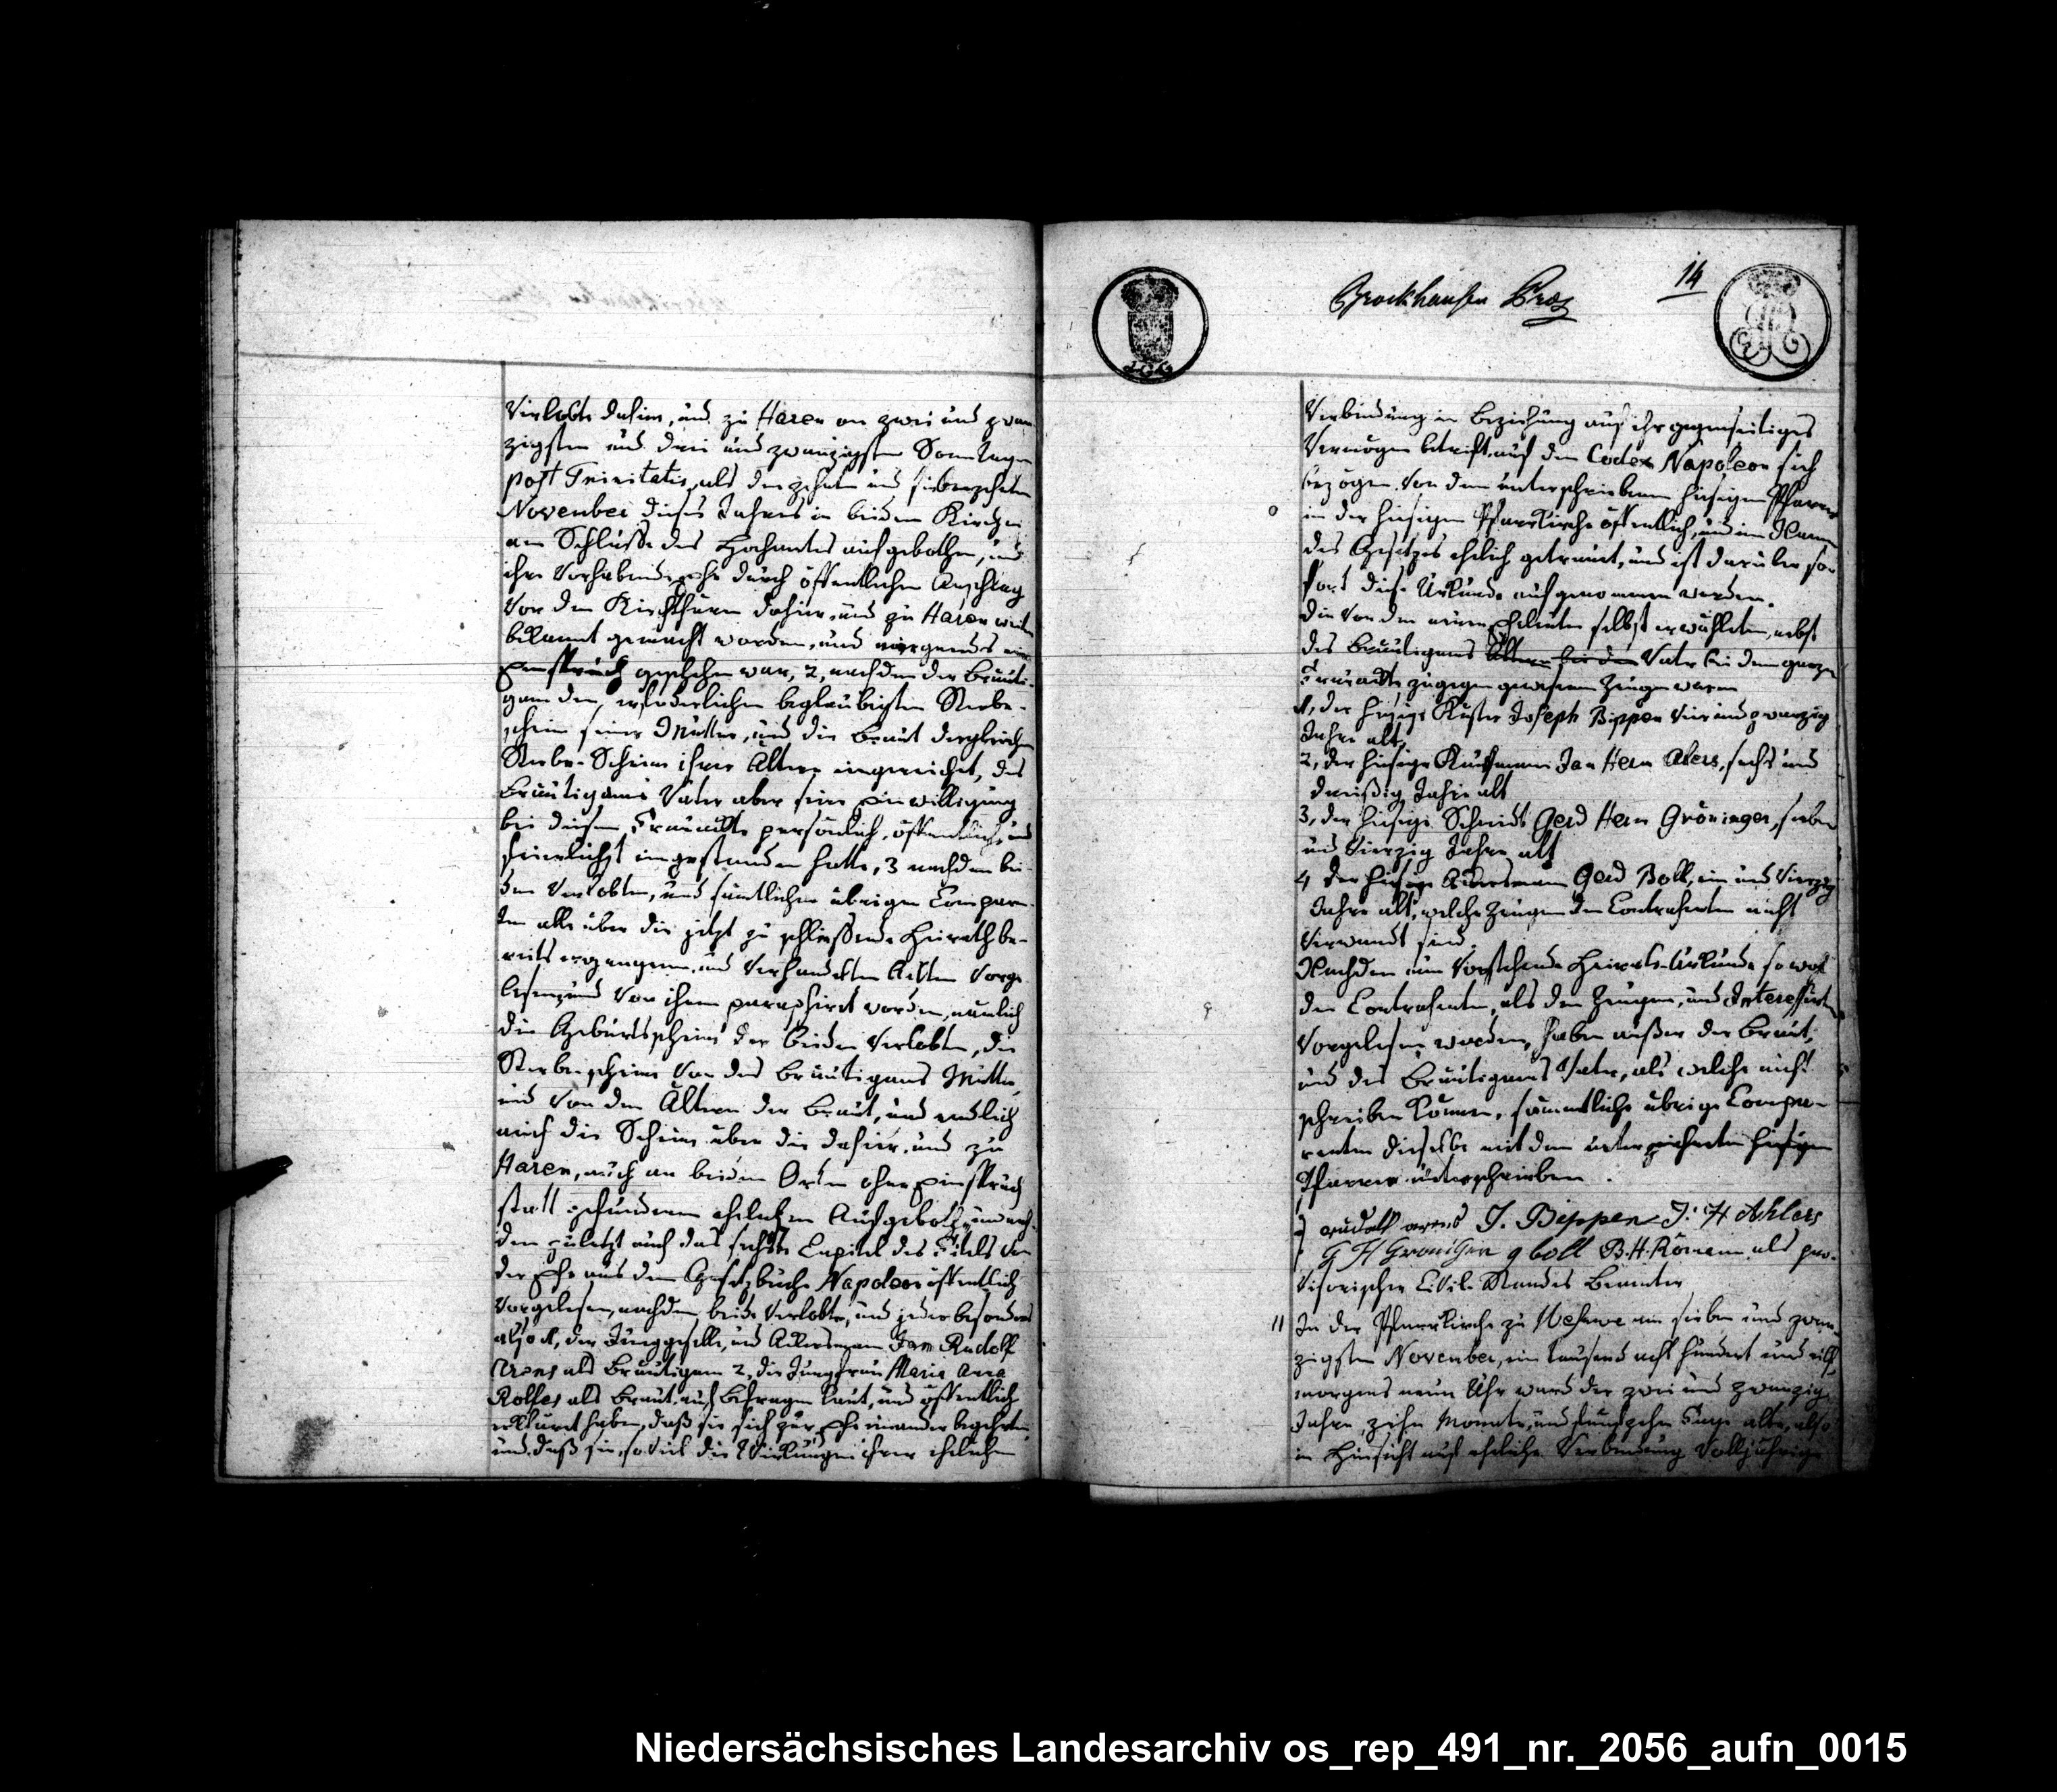 Verlobte dahier, und zu Haren am zwei und zwan-
zigsten und drei und zwanzigsten Sonntagen
post Trinitatis, als den zehnten und siebenzehnten
November dieses Jahres in beiden Kirchen
am Schlusse des Hochamtes aufgebothen, und
ihre Vorhabende Ehe durch öffentlichen Anschlag
Vor den Kirchthüren dahier, und zu Haren weiter
bekannt gemacht worden, und nirgends ein
Einspruch geschehen war, 2, nachdem der Bräuti-
gam den erforderlichen beglaubigten Sterbe-
schein seiner Mutter, und die Braut dergleichen
Sterbe-Scheine ihrer Ältern eingereichet, des
Bräutigams Vater aber seine Einwilligung
bei diesem persönlich, öffentlich, und
feierlichst eingestanden hatte, 3 nachdem bei-
den Verlobten, und sämtlichen übrigen Comparen-
ten alle über die jetzt zu schliessende Heirath be-
reits ergangene, und Verhandelten Akten Vorge-
lesen, und Von ihnen paraphirt worden, nämlich
die Geburtsscheine der beiden Verlobten, die
Sterbescheine Von des Bräutigams Mutter,
und Von den Ältern der Braut, und endlich
auch die Scheine über die dahier, und zu
Haren, auch an beiden Orten ohne Einspruch
statt gefundenen ehelichen Aufgeboth, und nach-
dem zuletzt auch das sechste Capitel des Titels Von
der Ehe aus dem Gesetzbuche Napoleon öffentlich
Vorgelesen, nachdem beide Verlobte, und jeder besonders
also 1, der Junggeselle, und Ackersmann Jan Rudolf
Arens als Bräutigam 2, die Jungfrau Maria Anna
Rolfes als Braut, auf Befragen laut, und öffentlich
erklärt haben, daß sie sich zur Ehe einander begehrten
und daß sie, so viel die Wirkungen ihrer ehelichen
Brockhausen
14
Verbindung in Beziehung auf ihr gegenseitiges
Vermögen betrift, auf den Codex Napoleon sich
bezögen. Von dem unterschriebenen hiesigen Pfarrer
in der hiesigen Pfarrkirche öffentlich, und im Namen
des Gesetzes ehelich getrauet, und ist darüber so-
fort diese Urkunde aufgenommen worden.
die Von den neuen Eheleuten selbst erwählten, nebst
des Bräutigams Vater bei dem ganzen
zugegen gewesenen Zeugen waren
1, der hiesige Küster Joseph Bippen Vier und zwanzig
Jahre alt,
2, der hiesige Kaufmann Jan Herm Alers, sechs und
dreißig Jahre alt
3, der hiesige Schmidt Gerd Herm Gröninger, sieben
und Vierzig Jahre alt
4 der hiesige Ackersmann Gerd Boll, ein und Vierzig
Jahre alt, welche Zeugen den Contrahenten nicht
Verwandt sind.
Nachdem nun Vorstehende Heiraths-Urkunde so wol
den Contrahenten, als den Zeugen, und Interessirten
Vorgelesen worden, haben außer der Braut,
und des Bräutigams Vater, als welche nicht
schreiben können, sämmtliche übrige Compa-
renten dieselbe mit dem unterzeichneten hiesigen
Pfarrer unterschrieben.
rudolf arens J. Bippen J: H Ahlers
G H Groniger g boll B. H. als pro-
visorischer Civil-Standes Beamter
11 In der Pfarrkirche zu Wesuwe am sieben und zwan-
zigsten November, ein tausend acht hundert und eilf
morgens neun Uhr ward der zwei und zwanzig
Jahre, zehn Monate, und fünfzehn Tage alte, also
in Hinsicht auf eheliche Verbindung Volljährige
Niedersächsisches Landesarchiv os_rep_491_nr._2056_aufn_0015